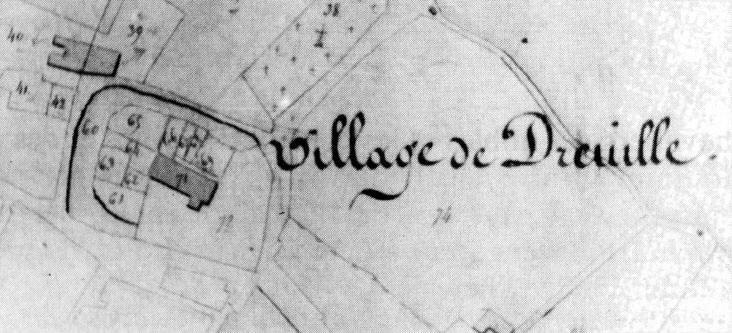 38
39
40
41
42
60
65
64
63
62
61
69
71
72
74
Village de Dreuille.